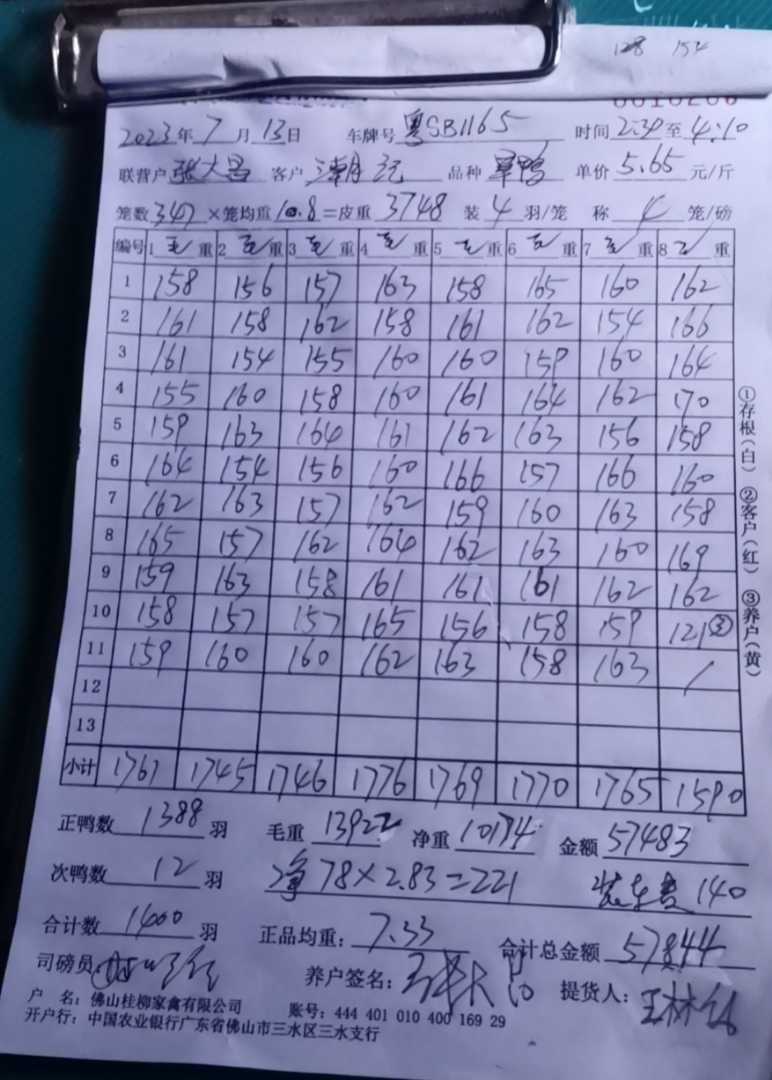 128 154
0010206
2023年7月13日 车牌号 粤SB1165 时间2:30至4:10
联营户 张大昌 客户 品种 单价5.65元/斤
笼数347×笼均重10.8=皮重3748 装4羽/笼 称4笼/磅
编号 1毛重 2毛重 3毛重 4毛重 5毛重 6毛重 7毛重 8毛重
1 158 156 157 163 158 165 160 162
2 161 158 162 158 161 162 154 166
3 161 154 155 160 160 159 160 164
4 155 160 158 160 161 164 162 170
5 159 163 164 161 162 163 156 158
6 164 154 156 160 166 157 166 160
7 162 163 157 162 159 160 163 158
8 165 157 162 164 162 163 160 169
9 159 163 158 161 161 161 162 162
10 158 157 157 165 156 158 159 121③
11 159 160 160 162 163 158 163 /
12
13
小计 1761 1745 1746 1776 1769 1770 1765 1590
正鸭数1388羽 毛重13922 净重10174 金额57483
次鸭数12羽 净78×2.83=221 装车费140
合计数1400羽 正品均重:7.33 合计总金额57844
司磅员 养户签名: 张大昌 提货人:
户 名:佛山桂柳家禽有限公司 账号:444 401 010 400 169 29
开户行:中国农业银行广东省佛山市三水区三水支行
①存根(白) ②客户(红) ③养户(黄)